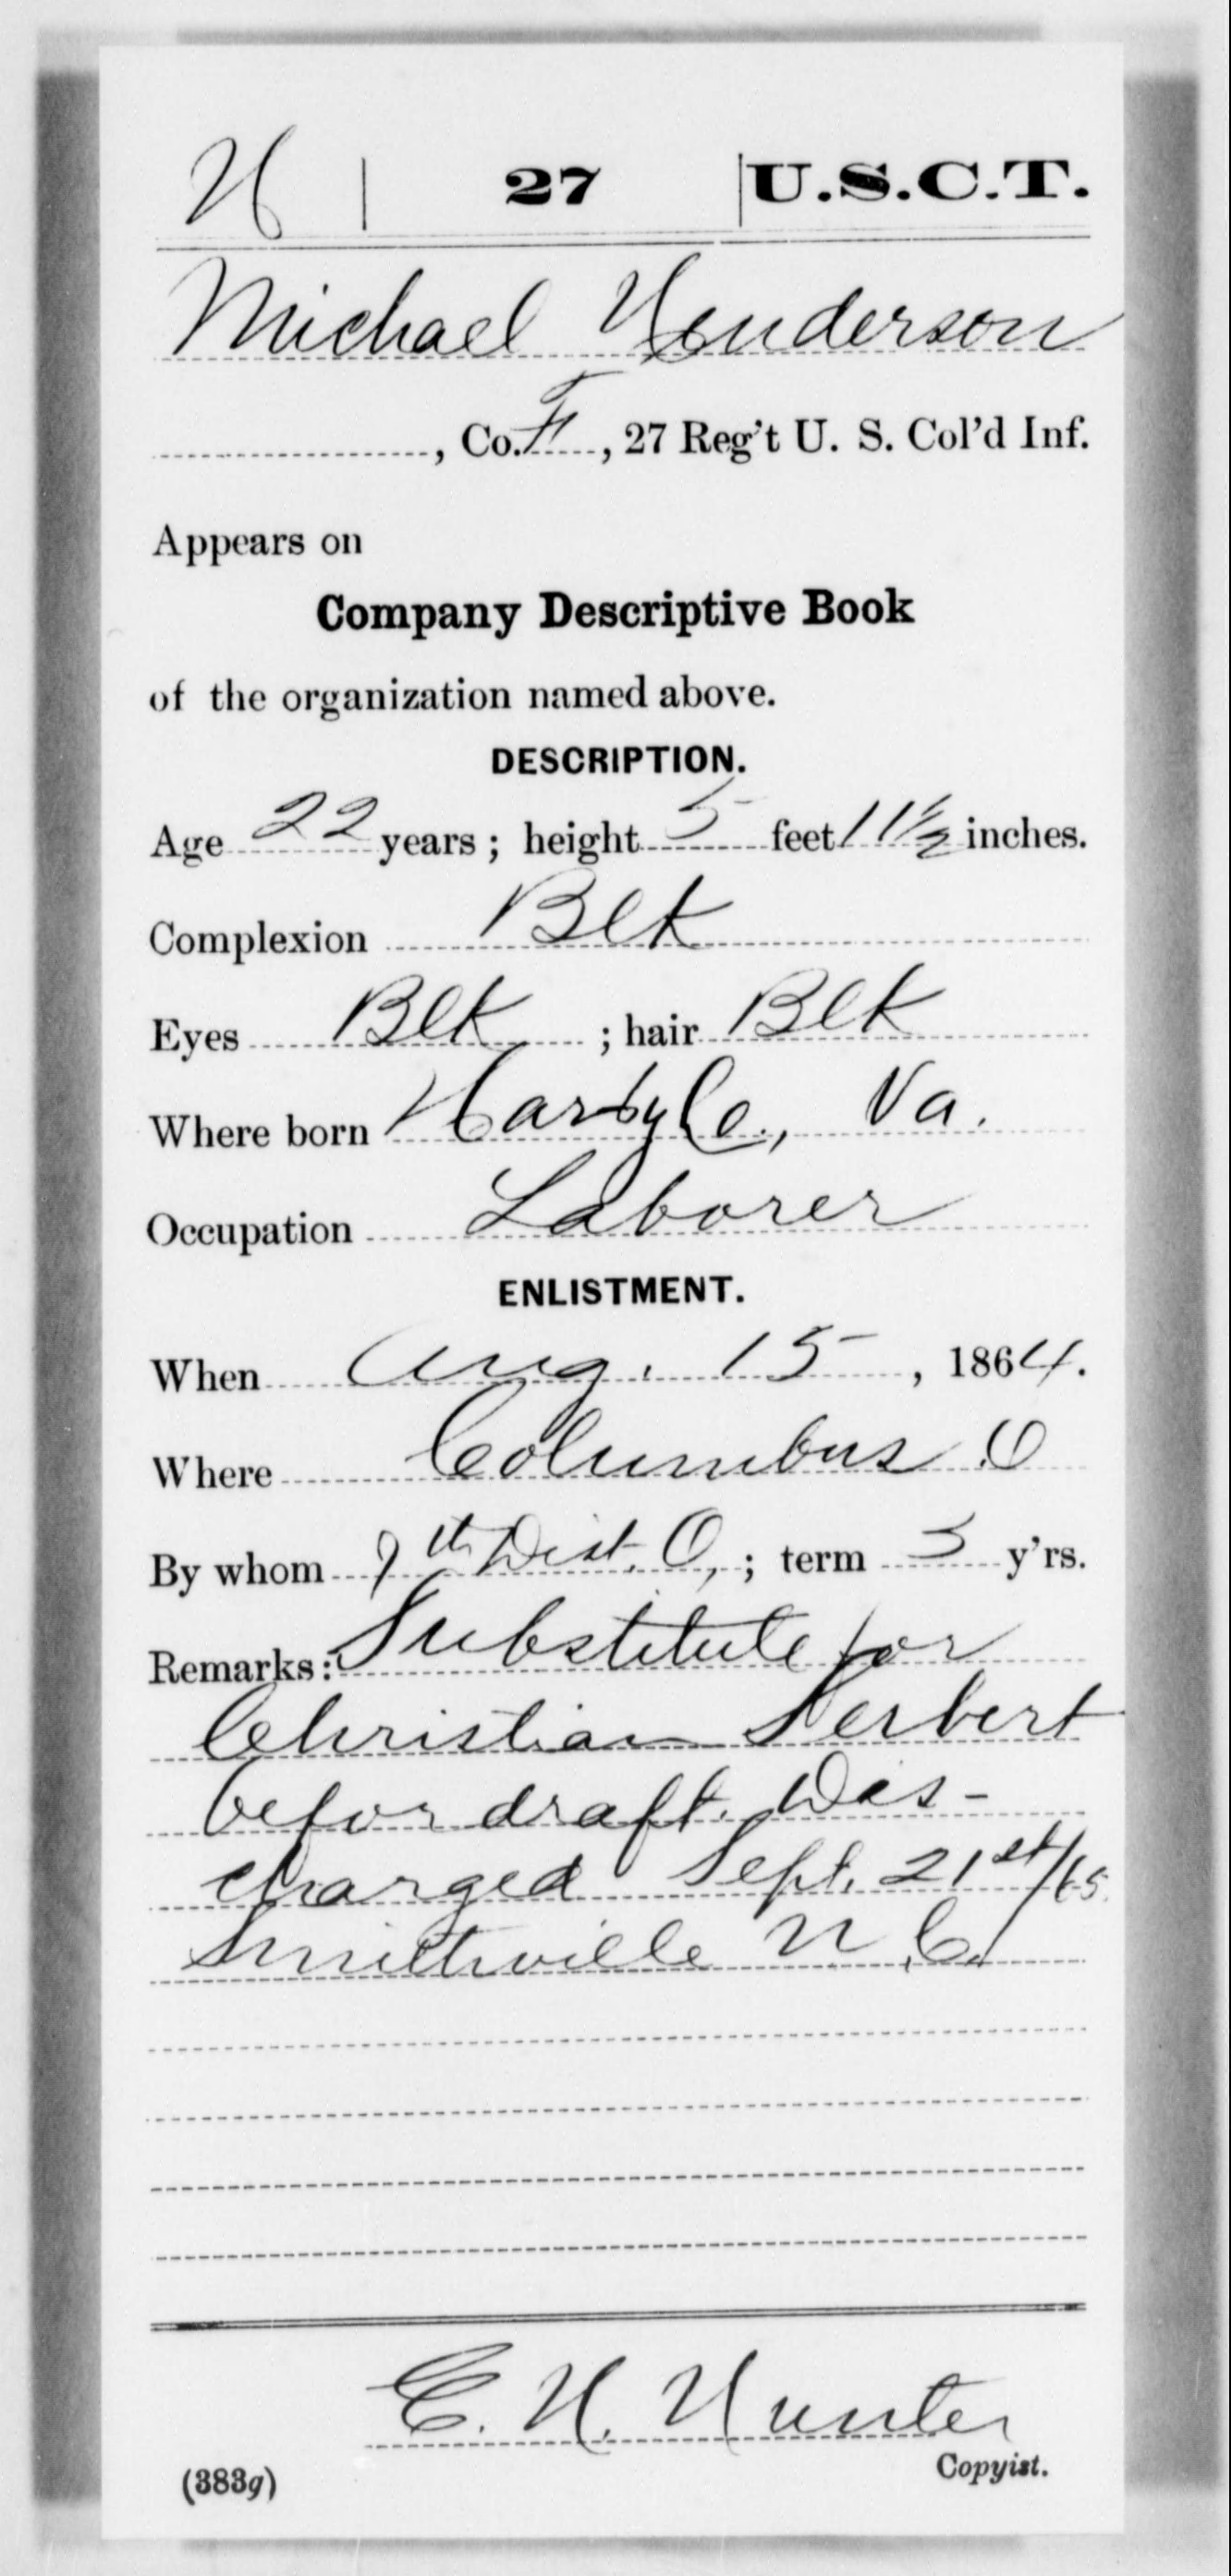 H | 27 | U.S.C.T.
Michael Henderson
, Co. F, 27 Reg't U. S. Col'd Inf.
Appears on
Company Descriptive Book
of the organization named above.
DESCRIPTION.
Age 22 years; height 5 feet 11½ inches.
Complexion Blk
Eyes Blk; hair Blk
Where born Harby Co., Va.
Occupation Laborer
ENLISTMENT.
When Aug. 15, 1864.
Where Columbus O
By whom 9th Dist. O,; term 3 y'rs.
Remarks: Substitute for
Christian
befor draft. Dis-
charged Sept. 21st/65.
Smithville N.C.
E. H. Hunter
Copyist.
(383g)